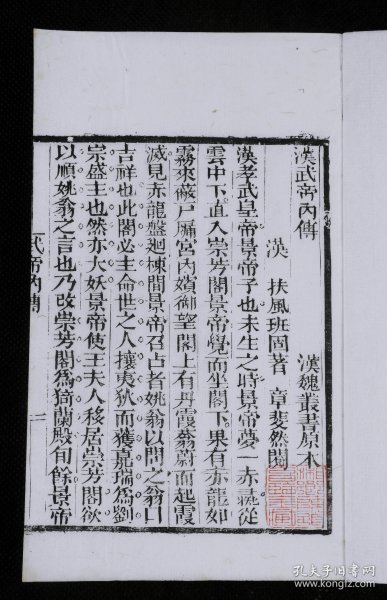 漢武帝內傳　漢魏叢書原本
漢　扶風班固著　章斐然閱
漢孝武皇帝景帝子也未生之時景帝夢一赤彘從
雲中下直入崇芳閣景帝覺而坐閣下果有赤龍如
霧來蔽戸牖宮內嬪御望閣上有丹霞蓊蔚而起霞
滅見赤龍盤迴棟間景帝召占者姚翁以問之翁曰
吉祥也此閣必生命世之人攘夷狄而獲嘉瑞爲劉
崇盛主也然亦大妖景帝使王夫人移居崇芳閣欲
以順姚翁之言也乃改崇芳閣爲猗蘭殿旬餘景帝
武帝內傳　一
孔夫子旧书网